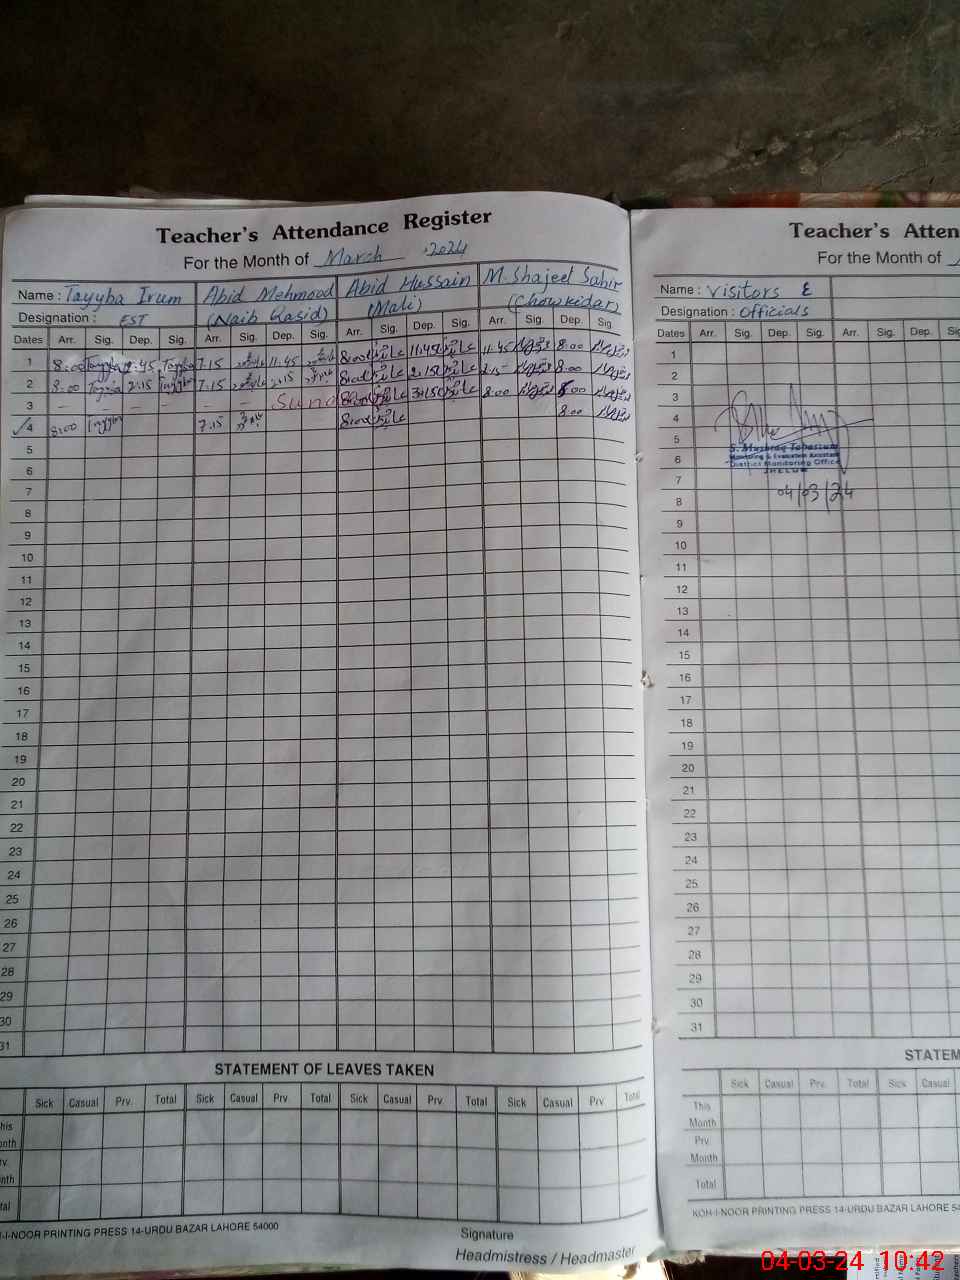 Teacher's Attendance Register
For the Month of March 2024
Name : Tayyba Irum Abid Mehmood Abid Hussain M. Shajeel Sabir
Designation : EST (Naib Qasid) (Mali) (Chowkidar)
Dates Arr. Sig. Dep. Sig. Arr. Sig. Dep. Sig. Arr. Sig. Dep. Sig. Arr. Sig. Dep. Sig.
1 8:00 Tayyba 11.45 Tayyba 7.15 11.45 8:00 11.45 11.45 8.00
2 8.00 Tayyba 2.15 Tayyba 7.15 2.15 8:00 2.15 2.15 8.00
3 – – – – – – 8:00 8.00
4 8:00 Tayyba 7.15 8:00 8.00
5
6
7
8
9
10
11
12
13
14
15
16
17
18
19
20
21
22
23
24
25
26
27
28
29
30
31
STATEMENT OF LEAVES TAKEN
Sick Casual Prv. Total Sick Casual Prv. Total Sick Casual Prv. Total Sick Casual Prv. Total
This
Month
Prv.
Month
Total
KOH-I-NOOR PRINTING PRESS 14-URDU BAZAR LAHORE 54000
Signature
Headmistress / Headmaster
Teacher's Atten
For the Month of
Name : Visitors &
Designation : Officials
Dates Arr. Sig. Dep. Sig. Arr. Sig. Dep. Sig.
1
2
3
4
5
6
7
8
9
10
11
12
13
14
15
16
17
18
19
20
21
22
23
24
25
26
27
28
29
30
31
S. Mushtaq Tabassum
Monitoring & Evaluation Assistant
District Monitoring Office
JHELUM
04/03/24
STATEM
Sick Casual Prv. Total Sick Casual
This
Month
Prv.
Month
Total
KOH-I-NOOR PRINTING PRESS 14-URDU BAZAR LAHORE 54
04-03-24 10:42